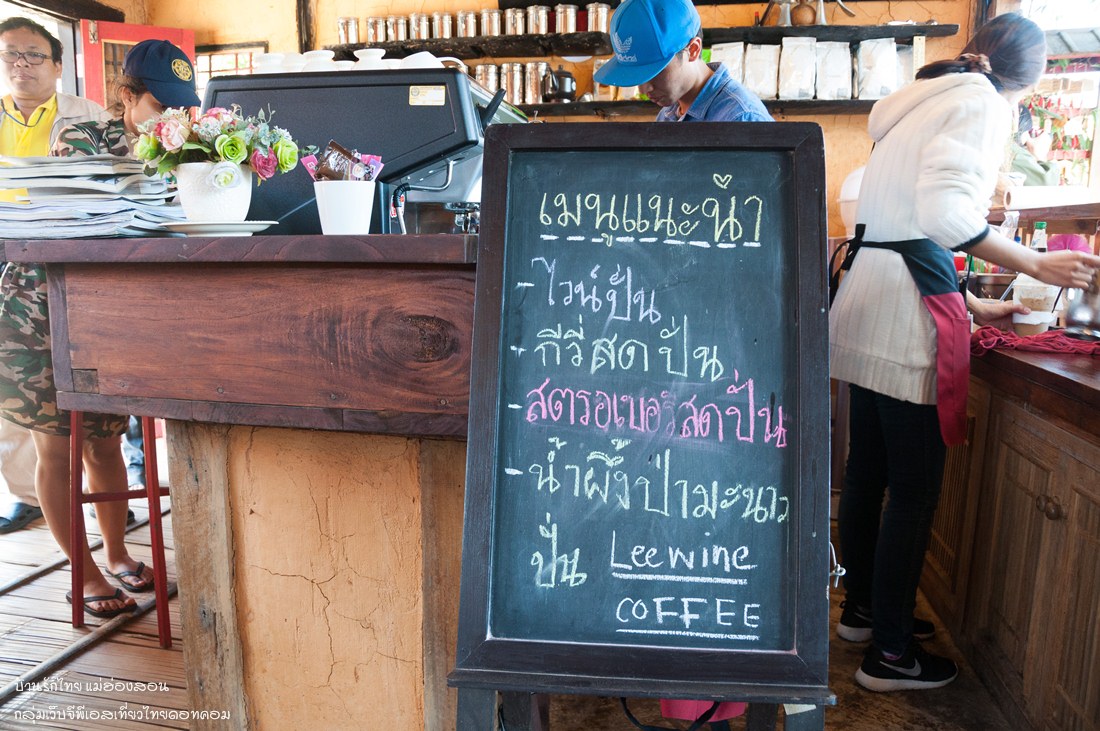 เมนูแนะนำ
- ไวน์ปั่น
- กีวี่สดปั่น
- สตรอเบอรี่สดปั่น
- น้ำผึ้งป่ามะนาว
ปั่น Leewine
COFFEE
บ้านรักไทย แม่ฮ่องสอน
กลุ่มเว็บจีทีเอสเที่ยวไทยดอทคอม